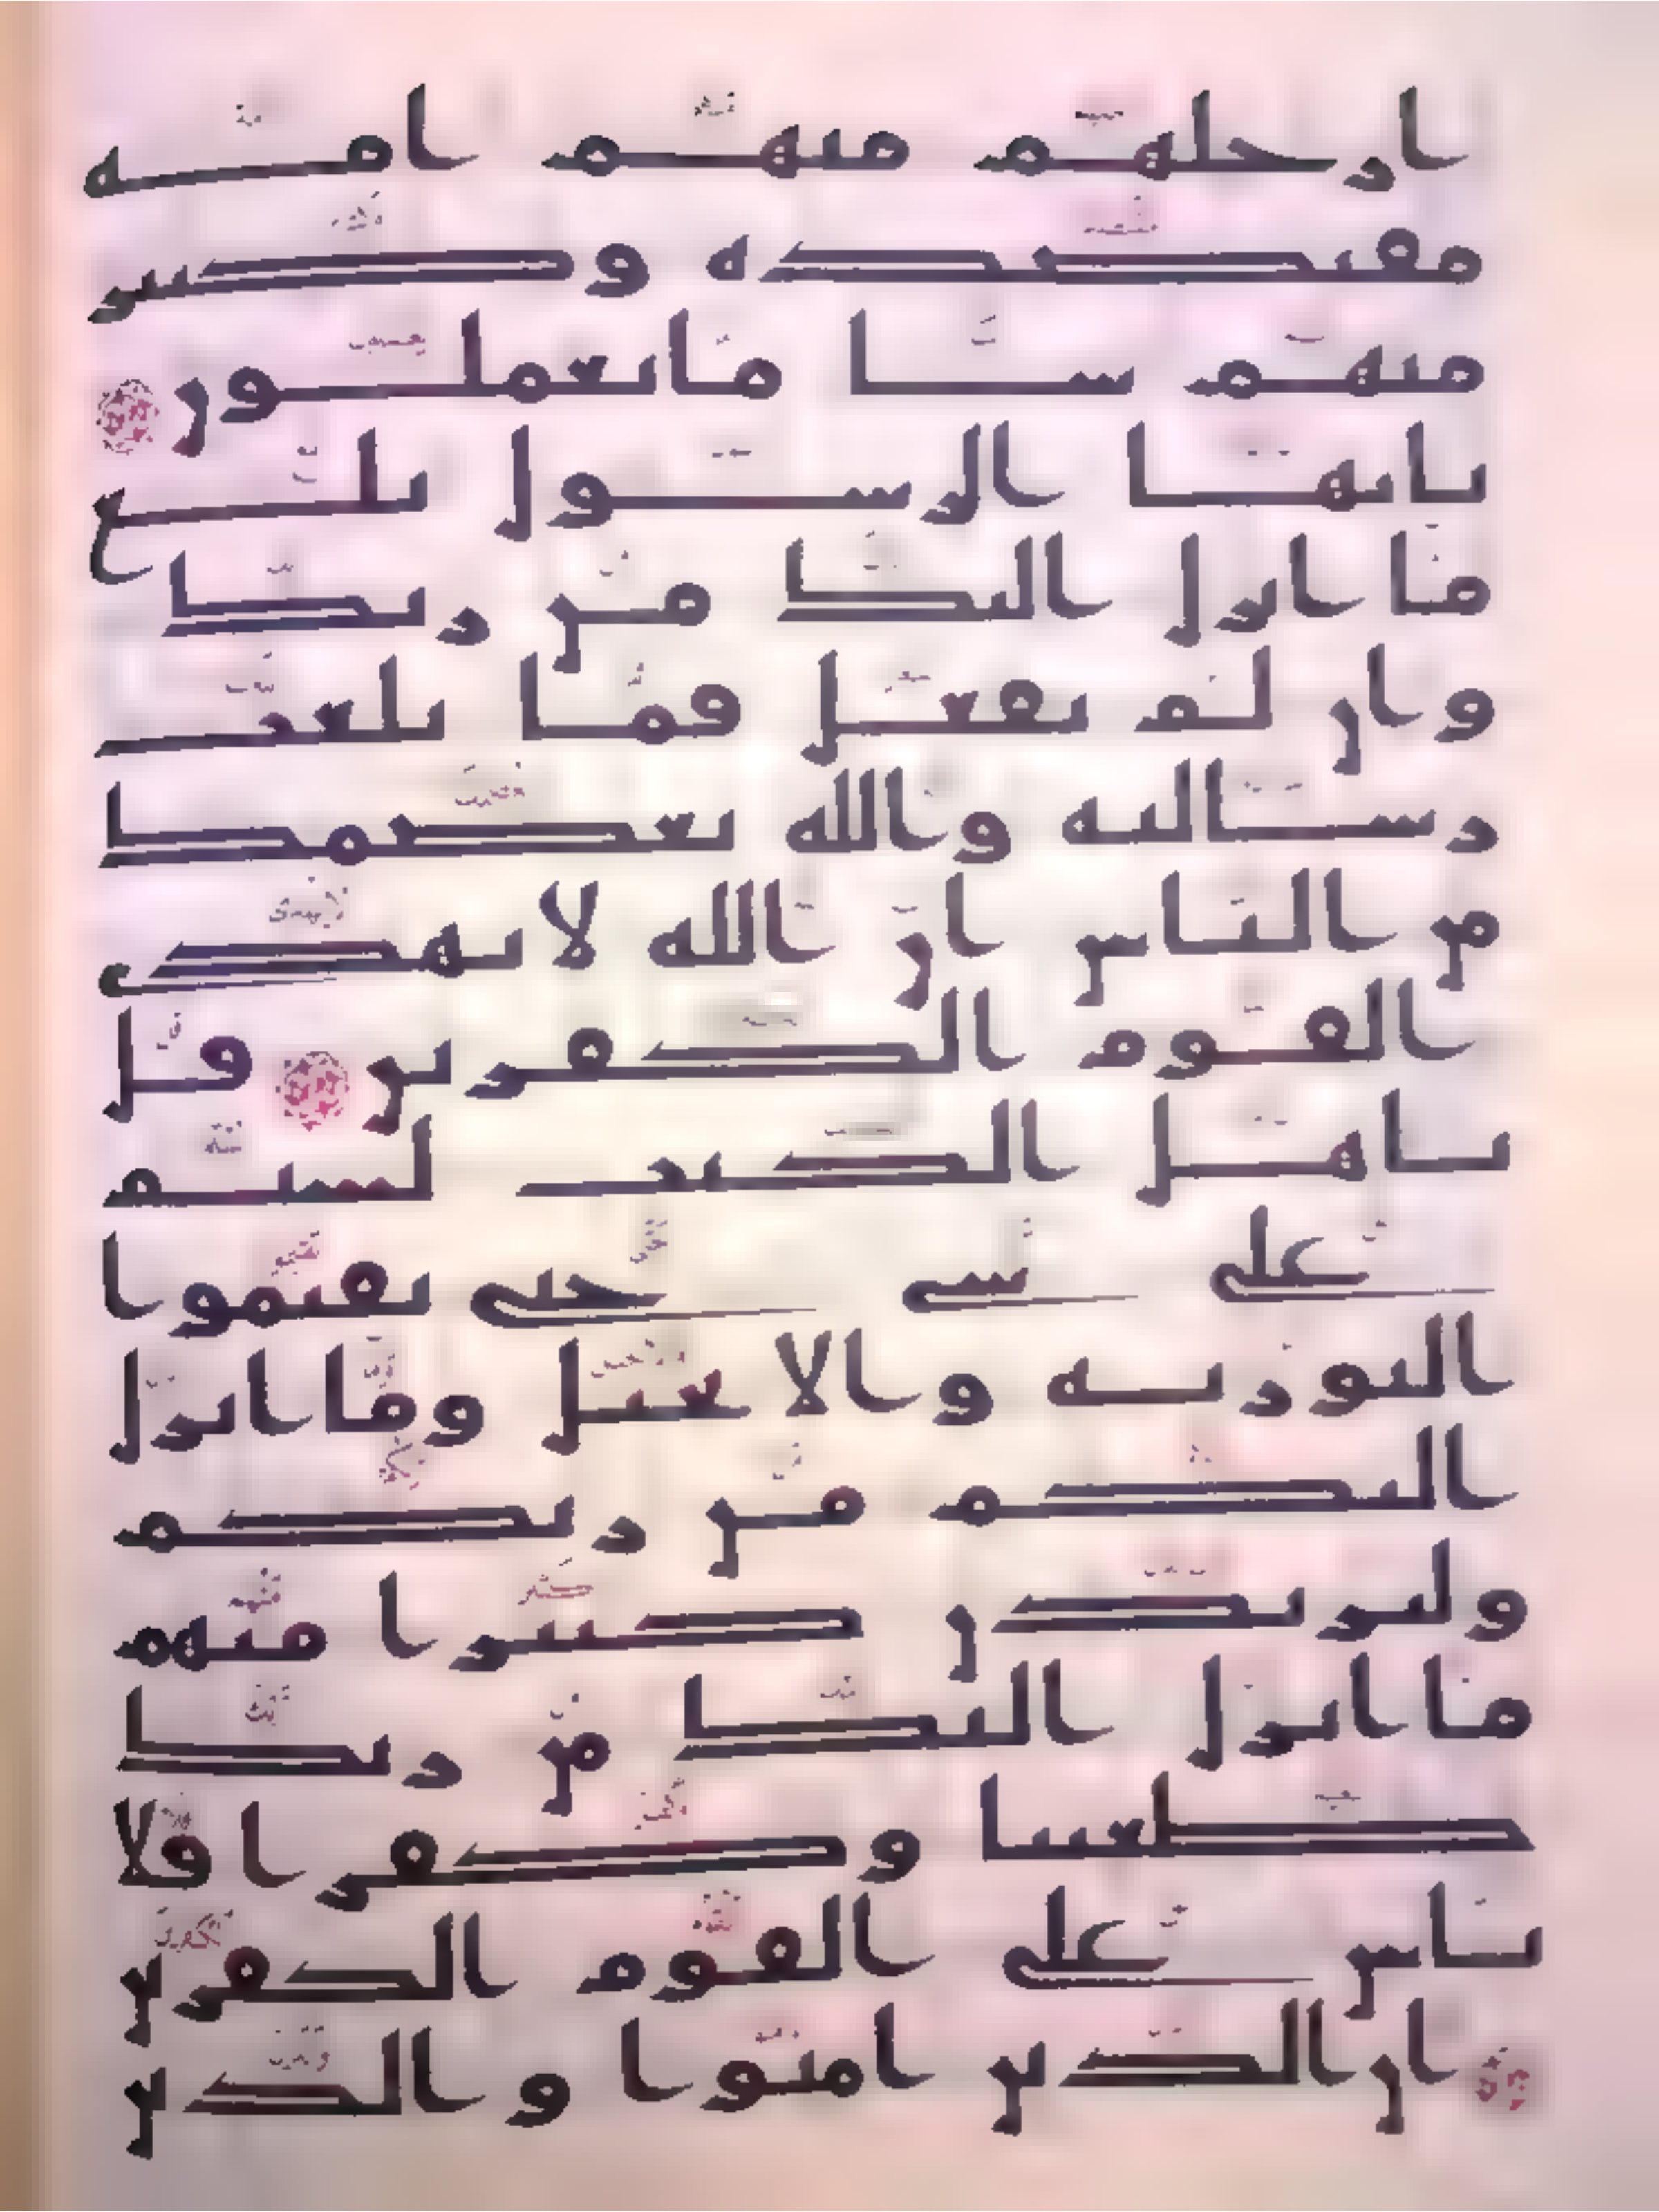 ارجلهم منهم امة
مقتصدة وكثير
منهم سا ما يعملون
يايها الرسول بلغ
ما انزل اليك من ربك
وان لم تفعل فما بلغت
رسالته والله يعصمك
من الناس ان الله لا يهدي
القوم الكفرين قل
ياهل الكتب لستم
على شي حتى تقيموا
التورية والانجيل وما انزل
اليكم من ربكم
وليزيدن كثيرا منهم
ما انزل اليك من ربك
طغينا وكفرا فلا
تاس على القوم الكفرين
ان الذين امنوا والذين